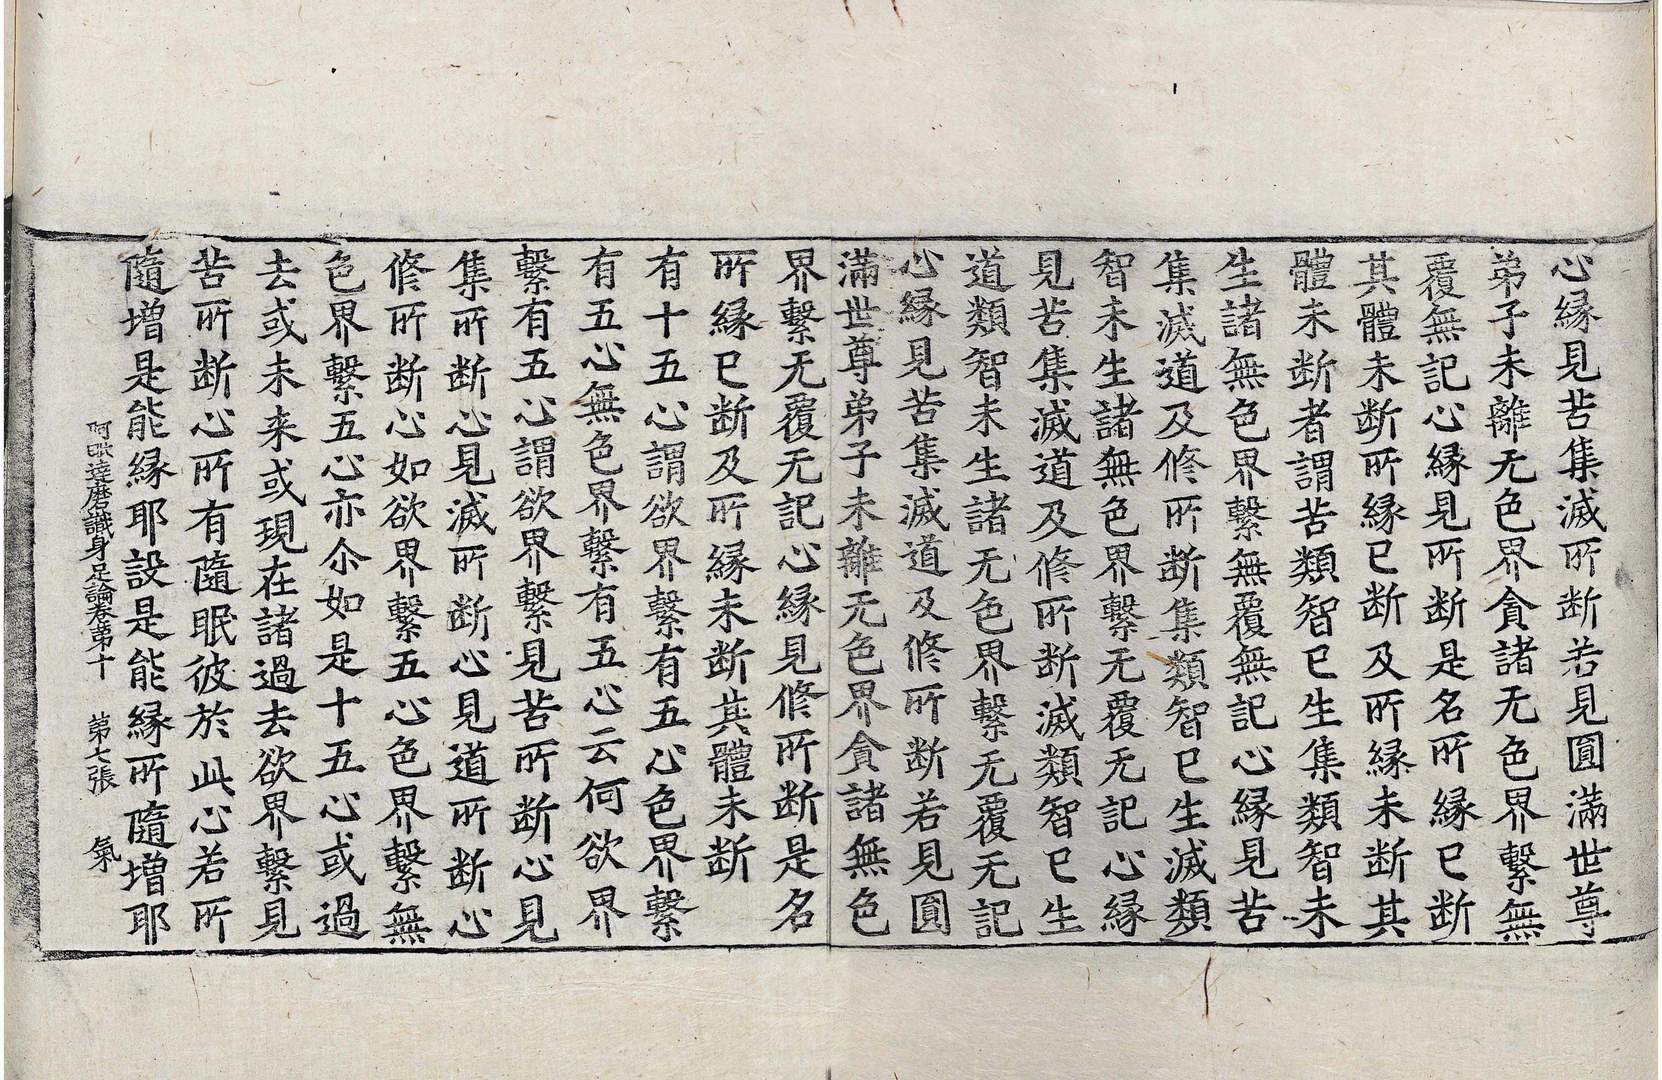 心緣見苦集滅所斷若見圓滿世尊
弟子未離无色界貪諸无色界繫無
覆無記心緣見所斷是名所緣已斷
其體未斷所緣已斷及所緣未斷其
體未斷者謂苦類智已生集類智未
生諸無色界繫無覆無記心緣見苦
集滅道及修所斷集類智已生滅類
智未生諸無色界繫无覆无記心緣
見苦集滅道及修所斷滅類智已生
道類智未生諸无色界繫无覆无記
心緣見苦集滅道及修所斷若見圓
滿世尊弟子未離无色界貪諸無色
界繫无覆无記心緣見修所斷是名
所緣已斷及所緣未斷其體未斷
有十五心謂欲界繫有五心色界繫
有五心無色界繫有五心云何欲界
繫有五心謂欲界繫見苦所斷心見
集所斷心見滅所斷心見道所斷心
修所斷心如欲界繫五心色界繫無
色界繫五心亦尒如是十五心或過
去或未来或現在諸過去欲界繫見
苦所斷心所有隨眠彼於此心若所
隨增是能緣耶設是能緣所隨增耶
阿毗達磨識身足論卷第十　第七張　氣